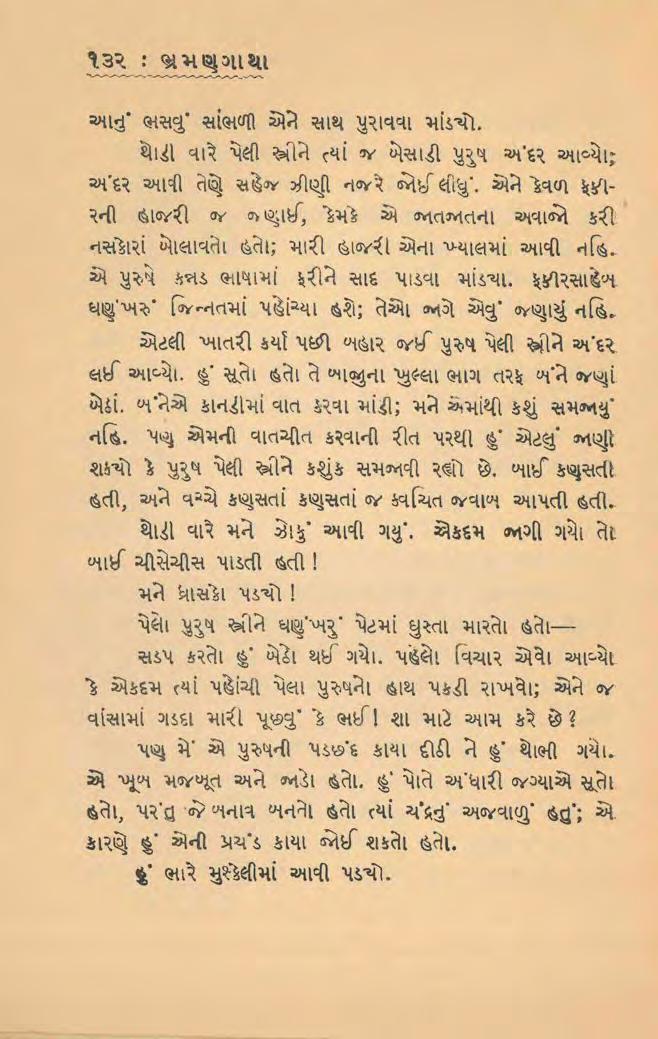 ૧૩૨ : ભ્રમણગાથા
આનું ભસવું સાંભળી એને સાથ પુરાવવા માંડ્યો.
થોડી વારે પેલી સ્ત્રીને ત્યાં જ બેસાડી પુરુષ અંદર આવ્યો;
અંદર આવી તેણે સહેજ ઝીણી નજરે જોઈ લીધું. એને કેવળ ફકી-
રની હાજરી જ જણાઈ, કેમકે એ જાતજાતના અવાજો કરી
નસકોરાં બોલાવતો હતો; મારી હાજરી એના ખ્યાલમાં આવી નહિ.
એ પુરુષે કન્નડ ભાષામાં ફરીને સાદ પાડવા માંડ્યા. ફકીરસાહેબ
ઘણુંખરું જિન્નતમાં પહોંચ્યા હશે; તેઓ જાગે એવું જણાયું નહિ.
એટલી ખાતરી કર્યા પછી બહાર જઈ પુરુષ પેલી સ્ત્રીને અંદર
લઈ આવ્યો. હું સૂતો હતો તે બાજુના ખુલ્લા ભાગ તરફ બંને જણાં
બેઠાં. બંનેએ કાનડીમાં વાત કરવા માંડી; મને એમાંથી કશું સમજાયું
નહિ. પણ એમની વાતચીત કરવાની રીત પરથી હું એટલું જાણી
શક્યો કે પુરુષ પેલી સ્ત્રીને કશુંક સમજાવી રહ્યો છે. બાઈ કણસતી
હતી, અને વચ્ચે કણસતાં કણસતાં જ ક્વચિત જવાબ આપતી હતી.
થોડી વારે મને ઝોકું આવી ગયું. એકદમ જાગી ગયો તો
બાઈ ચીસેચીસ પાડતી હતી !
મને ધ્રાસકો પડ્યો !
પેલો પુરુષ સ્ત્રીને ઘણુંખરું પેટમાં ઘુસ્તા મારતો હતો—
સડપ કરતો હું બેઠો થઈ ગયો. પહેલો વિચાર એવો આવ્યો
કે એકદમ ત્યાં પહોંચી પેલા પુરુષનો હાથ પકડી રાખવો; એને જ
વાંસામાં ગડદા મારી પૂછવું કે ભઈ! શા માટે આમ કરે છે ?
પણ મેં એ પુરુષની પડછંદ કાયા દીઠી ને હું થોભી ગયો.
એ ખૂબ મજબૂત અને જાડો હતો. હું પોતે અંધારી જગ્યાએ સૂતો
હતો, પરંતુ જે બનાવ બનતો હતો ત્યાં ચંદ્રનું અજવાળું હતું; એ
કારણે હું એની પ્રચંડ કાયા જોઈ શકતો હતો.
હું ભારે મુશ્કેલીમાં આવી પડ્યો.